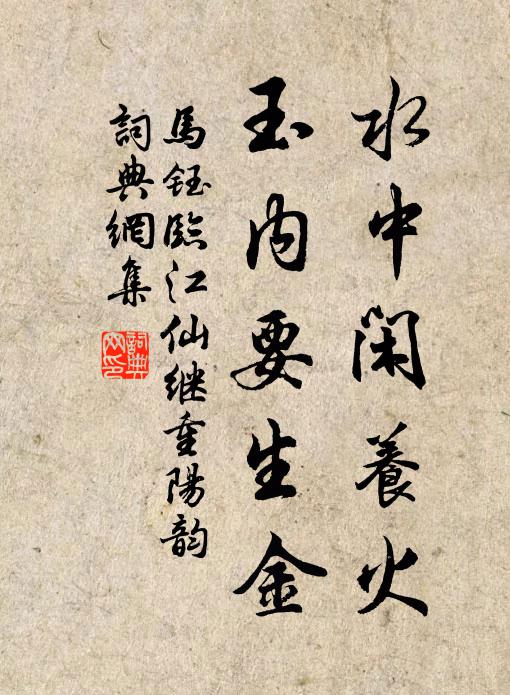 水中闲養火
玉内要生金
馬鈺臨江仙继重陽韵
詞典網集
詞典網印